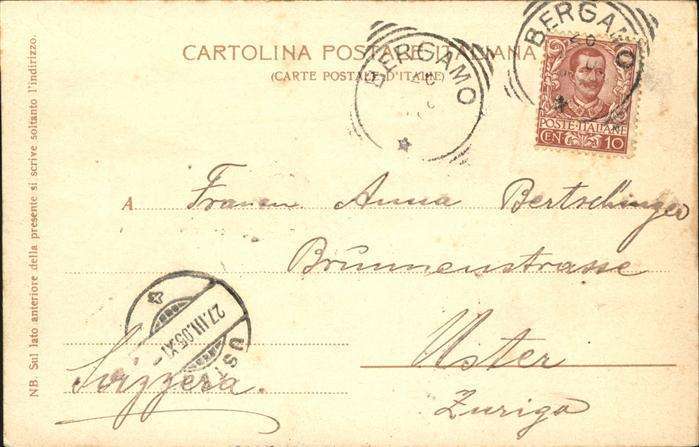 CARTOLINA POSTALE ITALIANA
(CARTE POSTALE D'ITALIE)
BERGAMO
BERGAMO
POSTE ITALIANE
CEN 10
A Anna Bertschinger
Brünnenstrasse
Uster
Svizzera.
Zurigo
27.III.05.XI
UST
NB. Sul lato anteriore della presente si scrive soltanto l'indirizzo.